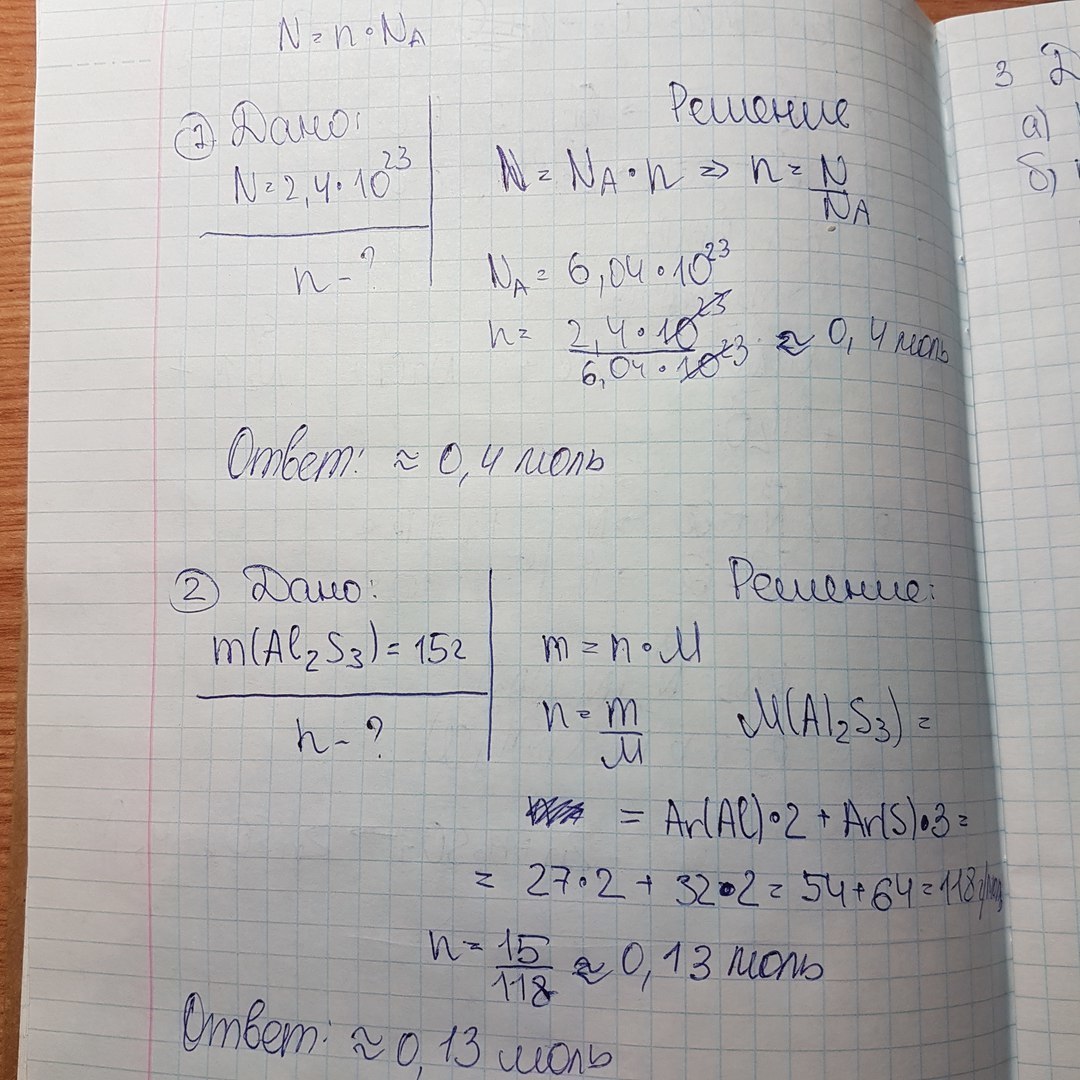 N = n • N_A
① Дано:
N = 2,4 • 10²³
n - ?
Решение
N = N_A • n => n = N/N_A
N_A = 6,04 • 10²³
n = 2,4 • 10²³ / 6,04 • 10²³ ≈ 0,4 моль
Ответ: ≈ 0,4 моль
② Дано:
m(Al₂S₃) = 15г
n - ?
Решение:
m = n • M
n = m/M M(Al₂S₃) =
= Ar(Al) • 2 + Ar(S) • 3 =
= 27 • 2 + 32 • 2 = 54 + 64 = 118
n = 15/118 ≈ 0,13 моль
Ответ: ≈ 0,13 моль
3 Д
а)
б)